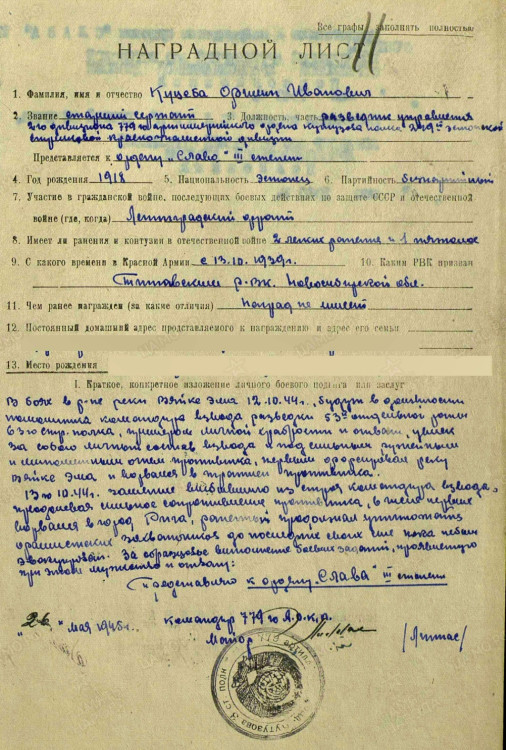 Все графы заполнять полностью
НАГРАДНОЙ ЛИСТ
1. Фамилия, имя и отчество Куцеба Иванович
2. Звание старший сержант 3. Должность, часть разведчик управления
2го дивизиона 779го артиллерийского ордена Кутузова полка эстонской
стрелковой краснознаменной дивизии
Представляется к ордену „Слава" III степени
4. Год рождения 1918 5. Национальность эстонец 6. Партийность беспартийный
7. Участие в гражданской войне, последующих боевых действиях по защите СССР и отечественной
войне (где, когда) Ленинградский фронт
8. Имеет ли ранения и контузии в отечественной войне 2 легких ранения и 1 тяжелое
9. С какого времени в Красной Армии с 13.10.1939г. 10. Каким РВК призван
Р.В.К. Новосибирской обл.
11. Чем ранее награжден (за какие отличия) Наград не имеет
12. Постоянный домашний адрес представляемого к награждению и адрес его семьи
13. Место рождения
I. Краткое, конкретное изложение личного боевого подвига или заслуг
В боях в р-не реки Вяйке Эма 12.10.44г., будучи в должности
помощника командира взвода разведки отдельной роты
63го стр. полка, примером личной храбрости и отваги, увлек
за собою личный состав взвода и под сильным ружейным
и минометным огнем противника, первым форсировал реку
Вяйке Эма и ворвался в траншеи противника.
13го 10.44г. заменив выбывшего из строя командира взвода,
преодолевая сильное сопротивление противника, в числе первых
ворвался в город Рига, раненный продолжал уничтожать
фашистских захватчиков до последних своих сил пока не был
эвакуирован. За образцовое выполнение боевых заданий, проявленную
при этом мужество и отвагу:
Представляю к ордену „Слава" III степени
"26" мая 1945г.
командир 779го А.О.К.П.
Майор